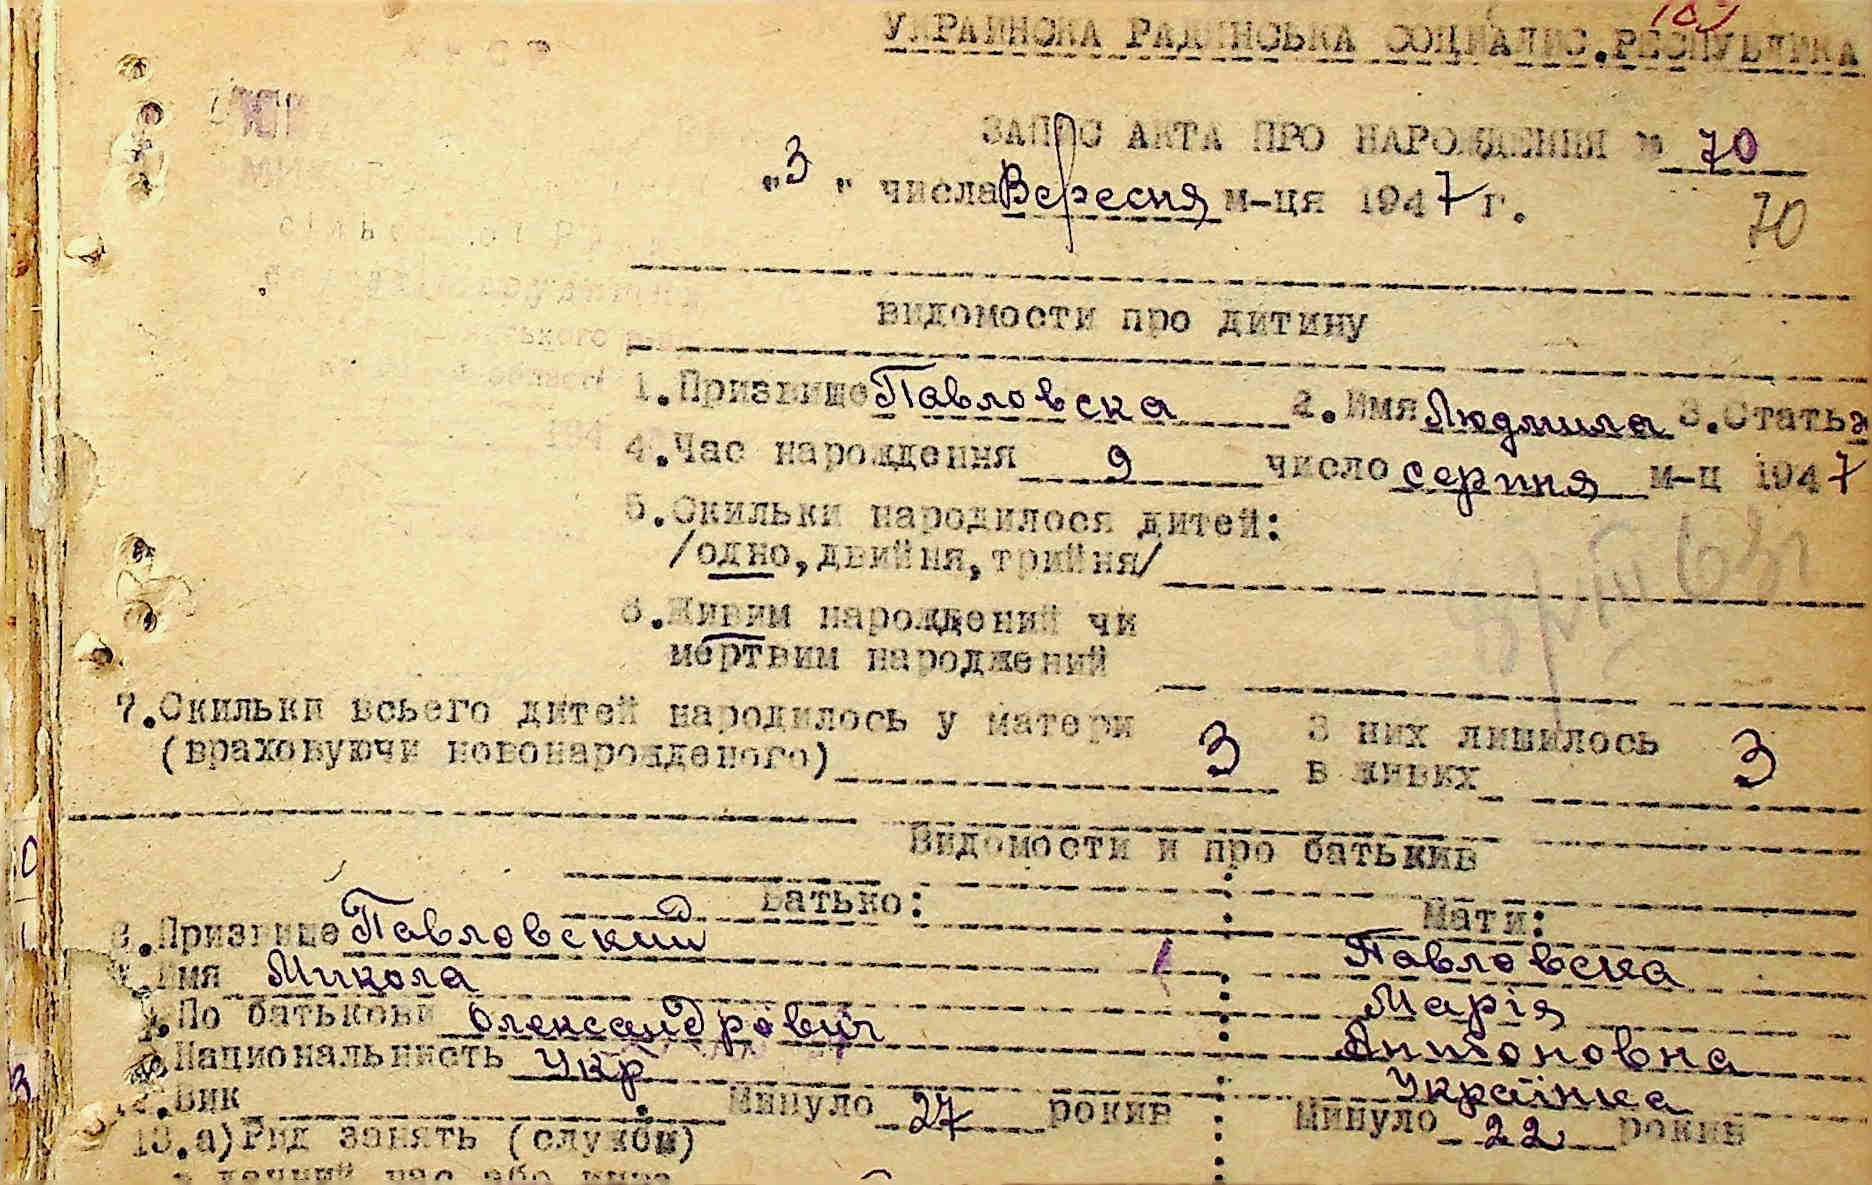 УКРАИНСКА РАДЯНСЬКА СОЦИАЛИС.РЕСПУБЛИКА
ЗАПИС АКТА ПРО НАРОЖДЕННЯ № 70
"3" числа Вересня м-ця 1947 г.
70
видомости про дитину
1.Призвище Павловска 2.Имя Людмила 3.Стать ж
4.Час нарождення 9 число серпня м-ц 1947
5.Скильки народилося дитей:
/одно,двийня,трийня/
6.Живим нарождений чи
мертвим народжений
7.Скильки всього дитей народилось у матери 3 З них лишилось 3
(враховуючи новонарожденого) в живих
Видомости и про батькив
Батько: Мати:
8.Призвище Павловский Павловска
Имя Микола Марія
По батькови Олександрович Антоновна
Национальнисть Укр Українка
12.Вик Минуло 27 рокив Минуло 22 рокив
13.а)Рид занять (служби)
в данний час або